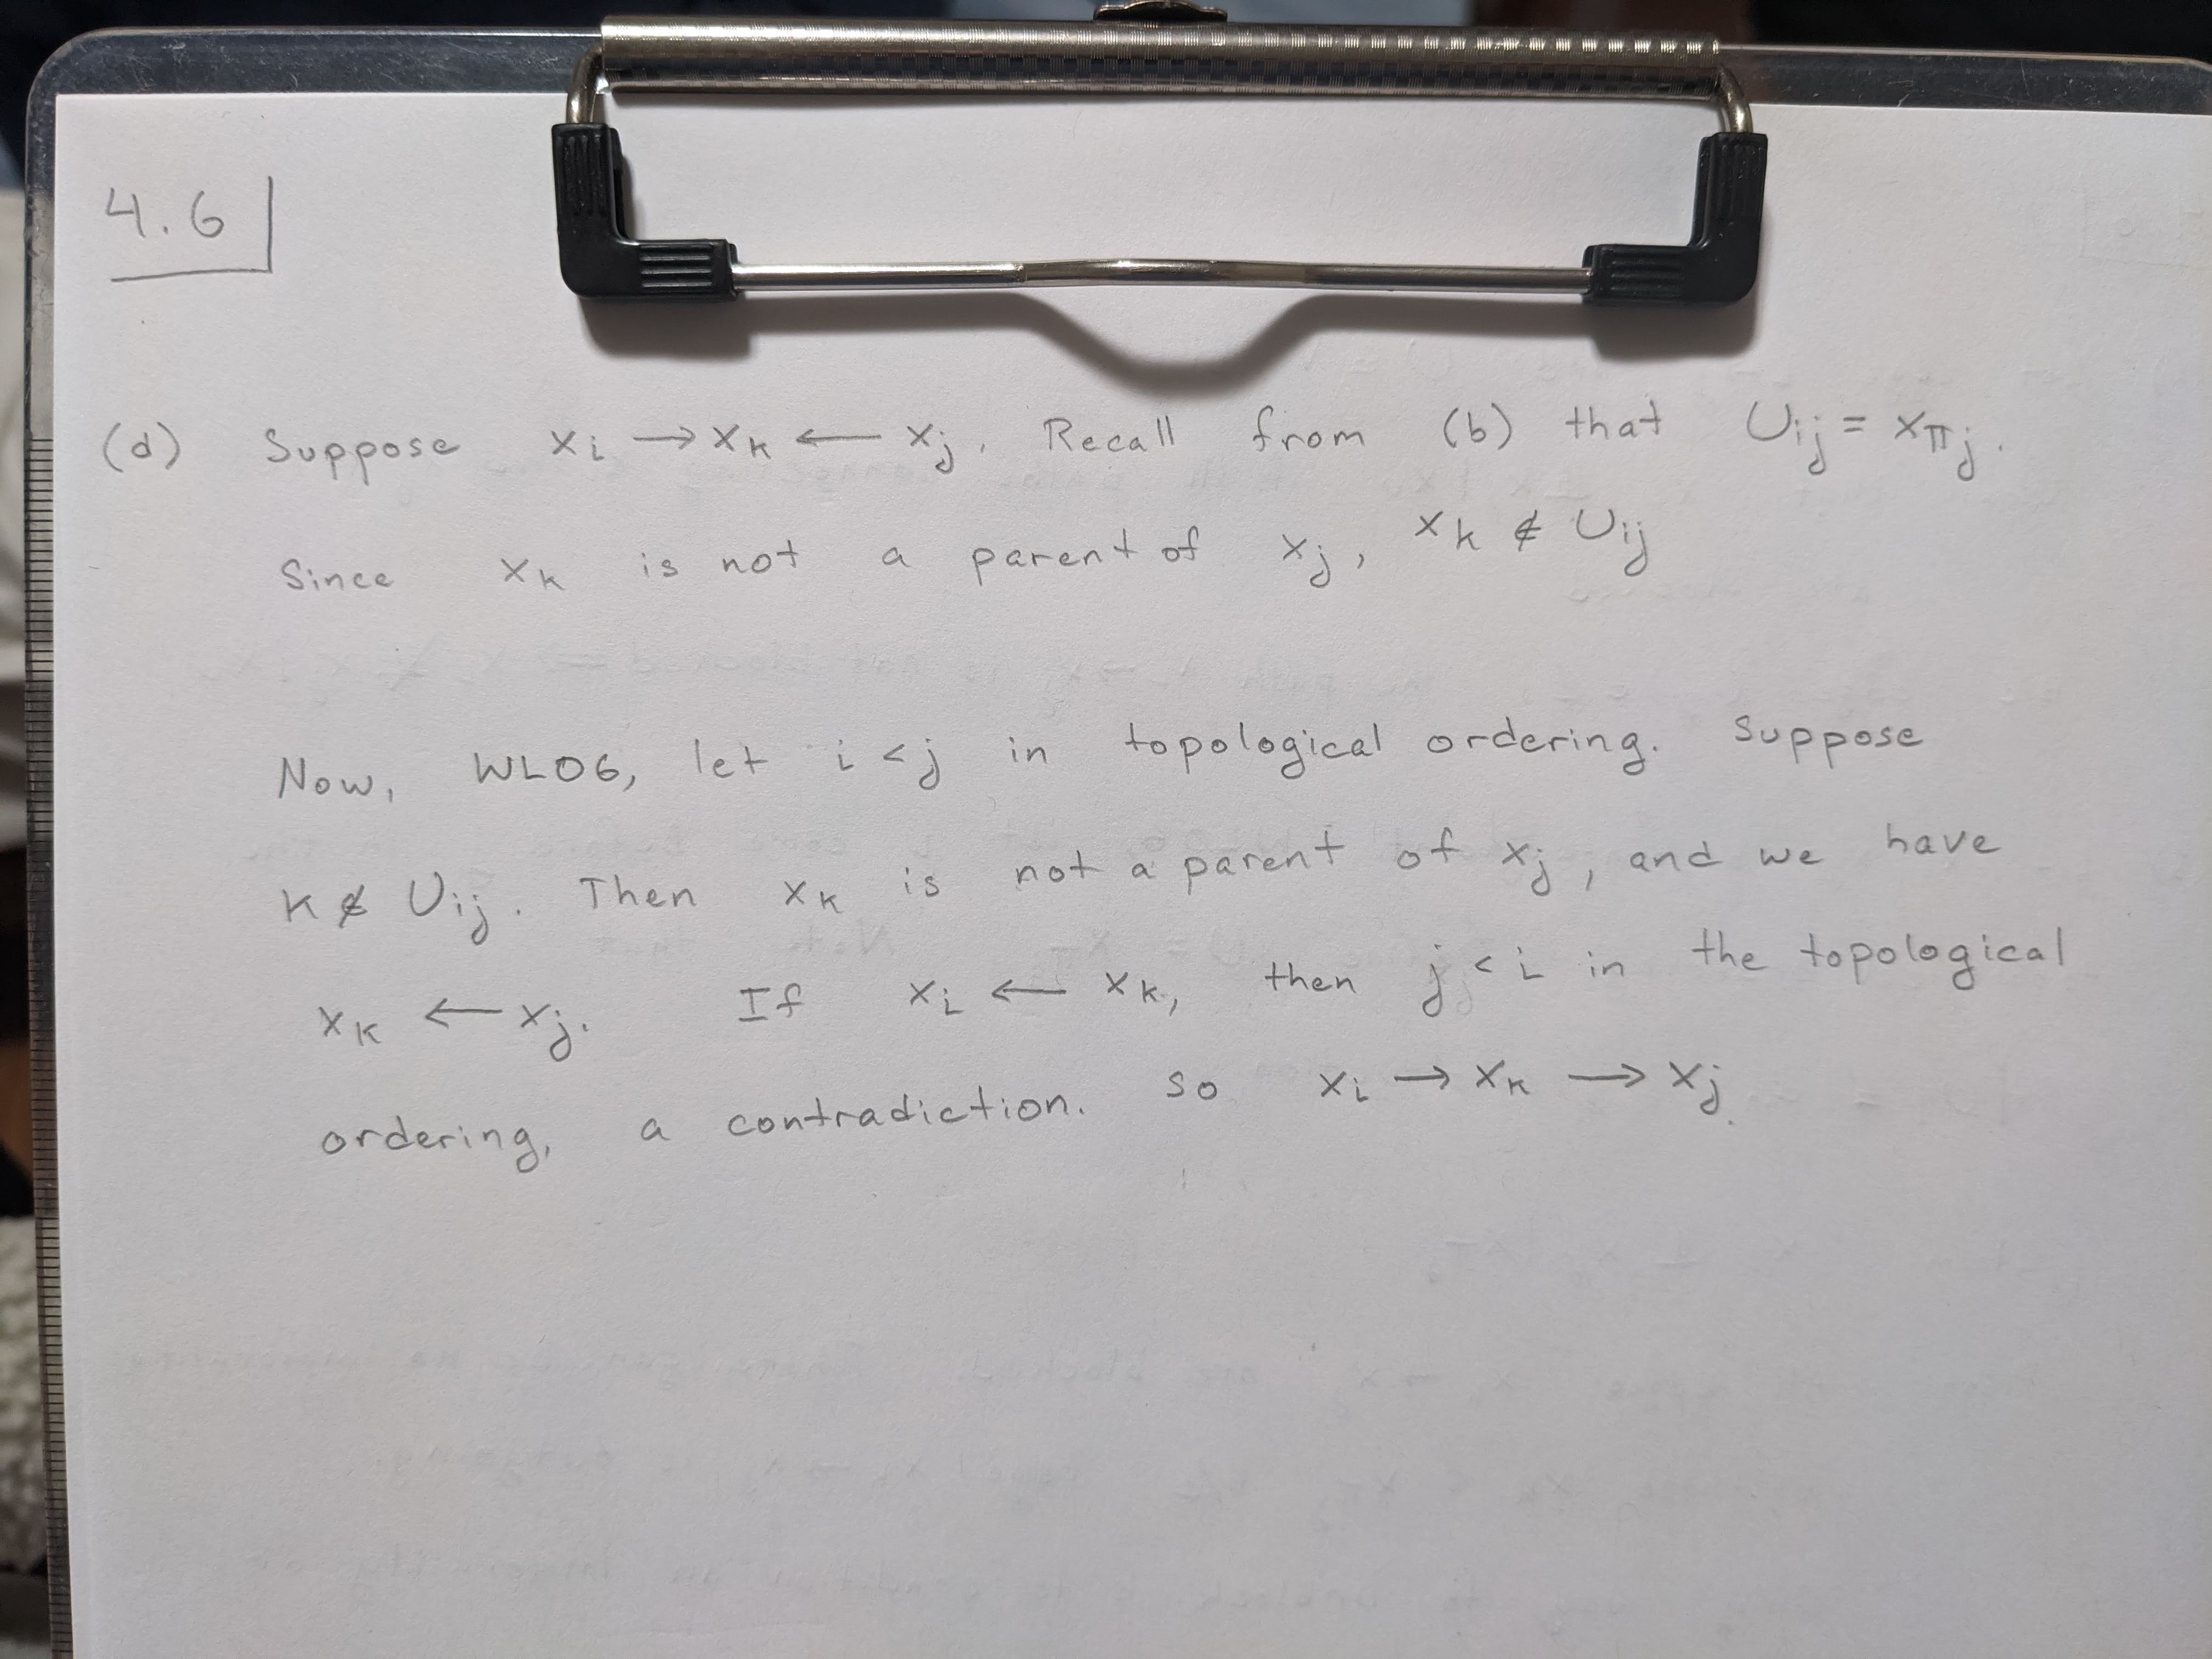 4.6
(d) Suppose x_i → x_k ← x_j. Recall from (b) that U_ij = x_π_j.
Since x_k is not a parent of x_j, x_k ∉ U_ij
Now, WLOG, let i < j in topological ordering. Suppose
k ∉ U_ij. Then x_k is not a parent of x_j, and we have
x_k ← x_j. If x_i ← x_k, then j < i in the topological
ordering, a contradiction. So x_i → x_k → x_j.